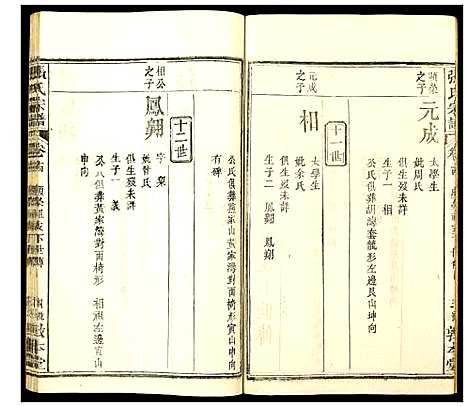 張氏宗譜
顯榮之子
元成
太學生
妣周氏
俱生殁未詳
生子一 相
公氏俱葬胡海套龍形左邊艮山坤向
十一世
元成之子
相
太學生
妣余氏
俱生殁未詳
生子二 鳳翱 鳳翔
公氏俱葬燕家山黃家灣對面椅形寅山申向
有碑
十二世
相公之子
鳳翱
字梁
妣管氏
俱生殁未詳
生子一 義
公氏俱葬黃家灣對面椅形 相祖左邊寅山
申向
張氏宗譜
敦本堂